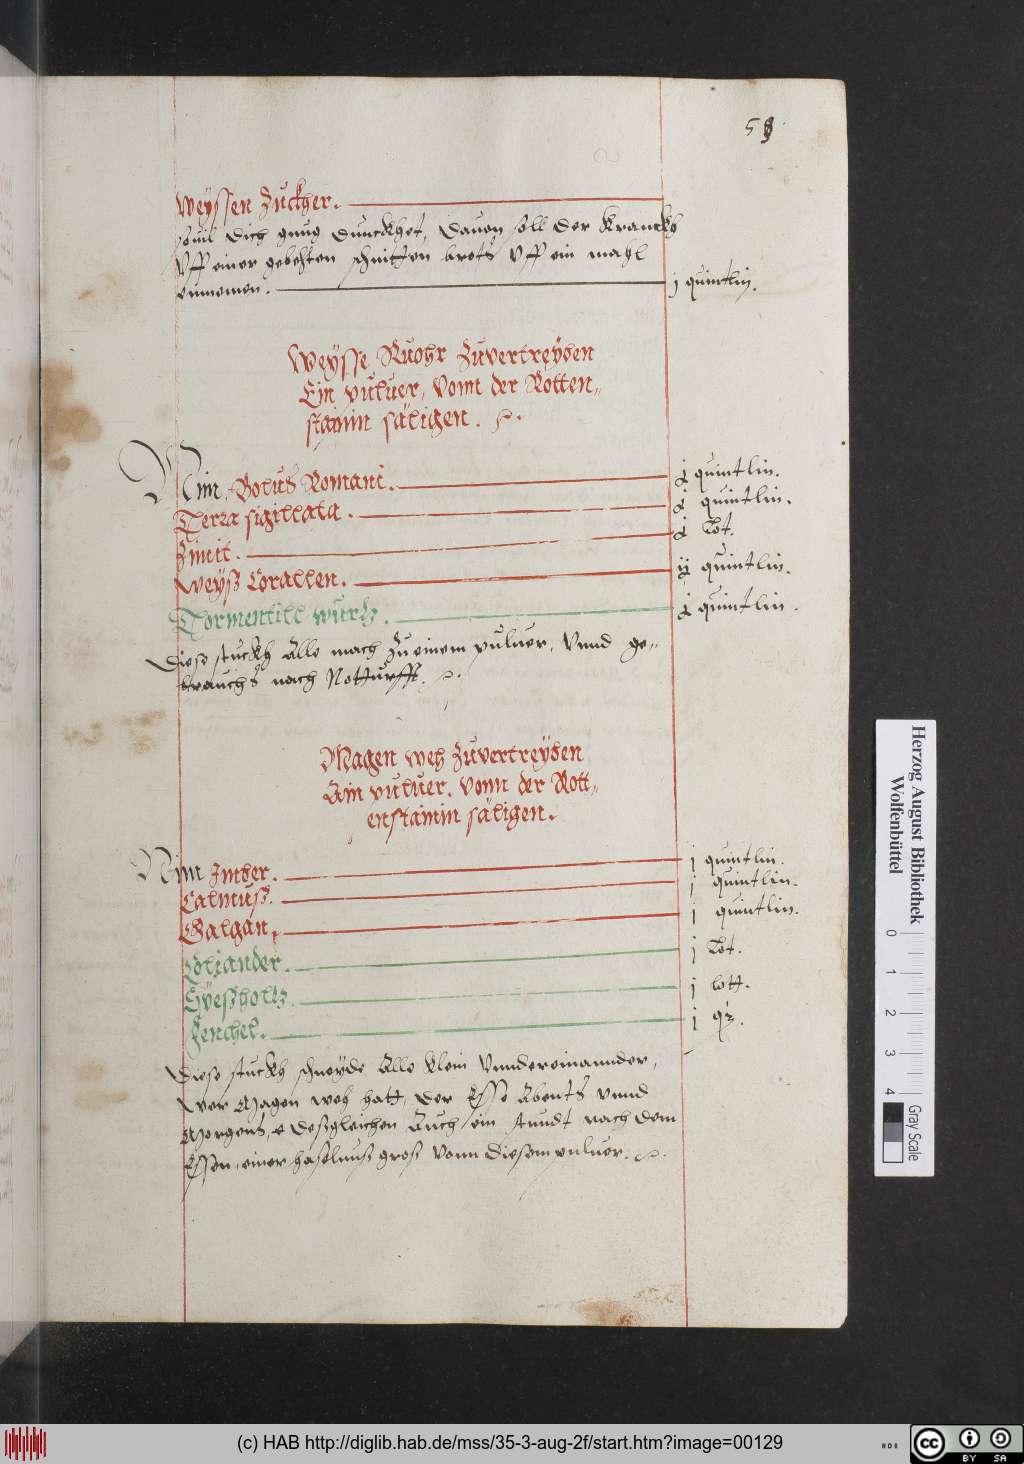 58
Weyssen Zuckher.
souil dich gnug dunckhet, dauon soll der Kranckh
Vff einer gebehten schnitten brots Vff ein mahl
einnemen. j quintlin.
Weysse Ruohr Zuvertreyben
Ein puluer, Vonn der Rotten-
stainin säligen.
Nim Bolus Romani. j quintlin.
Terra sigillata. j quintlin.
Zimit. j Lot.
Weyß Corallen. ij quintlin.
Tormentill wurtz. j quintlin.
Diese stuckh Alle mach Zu einem puluer, Vnnd ge-
brauchs nach Notturfft.
Magen weh Zuvertreyben
Ain puluer. vonn der Rott-
enstainin säligen.
Nim Imber. j quintlin.
Calmuß. j quintlin.
Galgan. j quintlin.
Coliander. j Lot.
Süeßholtz. j lott.
Fenchel. j q
Diese stuckh schneyde Alle klein Vnndereinannder,
Wer Magen weh hatt, der Esse Abents vnnd
Morgens, deßgleichen Auch ein stundt nach dem
Essen, einer haselnuß groß Vonn diesem puluer.
Herzog August Bibliothek
Wolfenbüttel
0 1 2 3 4
Gray Scale
(c) HAB http://diglib.hab.de/mss/35-3-aug-2f/start.htm?image=00129
cc
BY SA